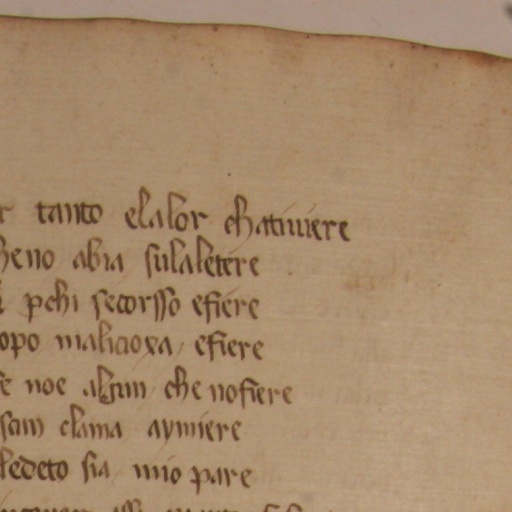 tanto elalor chatiuiere
heno abia sulaletere
pchi secorsso efiere
opo malicioxa efiere
se noe algun che nofiere
scun clama aymiere
ledeto sia mio pare